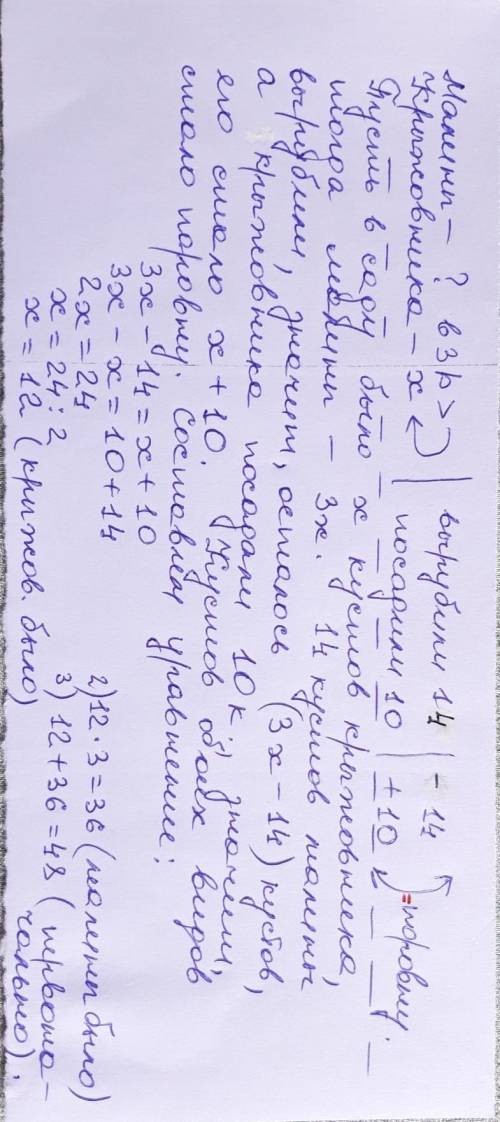 Малины – ? в 3 р > | вырубили 14 | – 14
Крыжовника – х | посадили 10 | + 10 = поровну.
Пусть в саду было х кустов крыжовника,
тогда малины – 3х. 14 кустов малины
вырубили, значит, осталось (3х – 14) кустов,
а крыжовника посадили 10 к., значит,
его стало х + 10. Кустов обоих видов
стало поровну. Составлю уравнение:
3х – 14 = х + 10
3х – х = 10 + 14
2х = 24
х = 24 : 2
х = 12 (крыжов. было)
2) 12 · 3 = 36 (малины было)
3) 12 + 36 = 48 (первона-
чально).